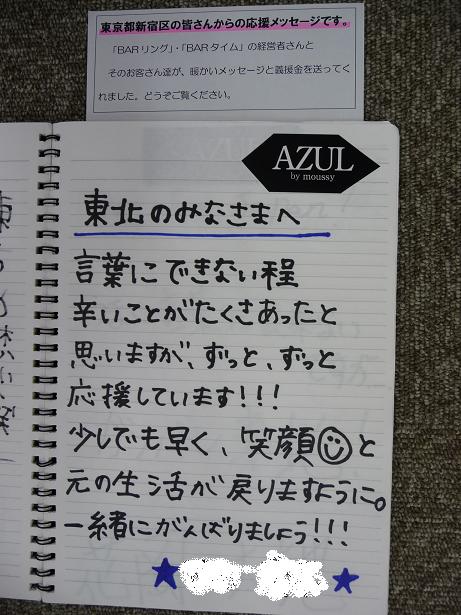 東京都新宿区の皆さんからの応援メッセージです。
「BARリング」・「BARタイム」の経営者さんと
そのお客さん達が、暖かいメッセージと義援金を送ってく
れました。どうぞご覧ください。
AZUL
by moussy
東北のみなさまへ
言葉にできない程
辛いことがたくさあったと
思いますが、ずっと、ずっと
応援しています!!!
少しでも早く、笑顔☺と
元の生活が戻りますように。
一緒にがんばりましょう!!!
★ ★